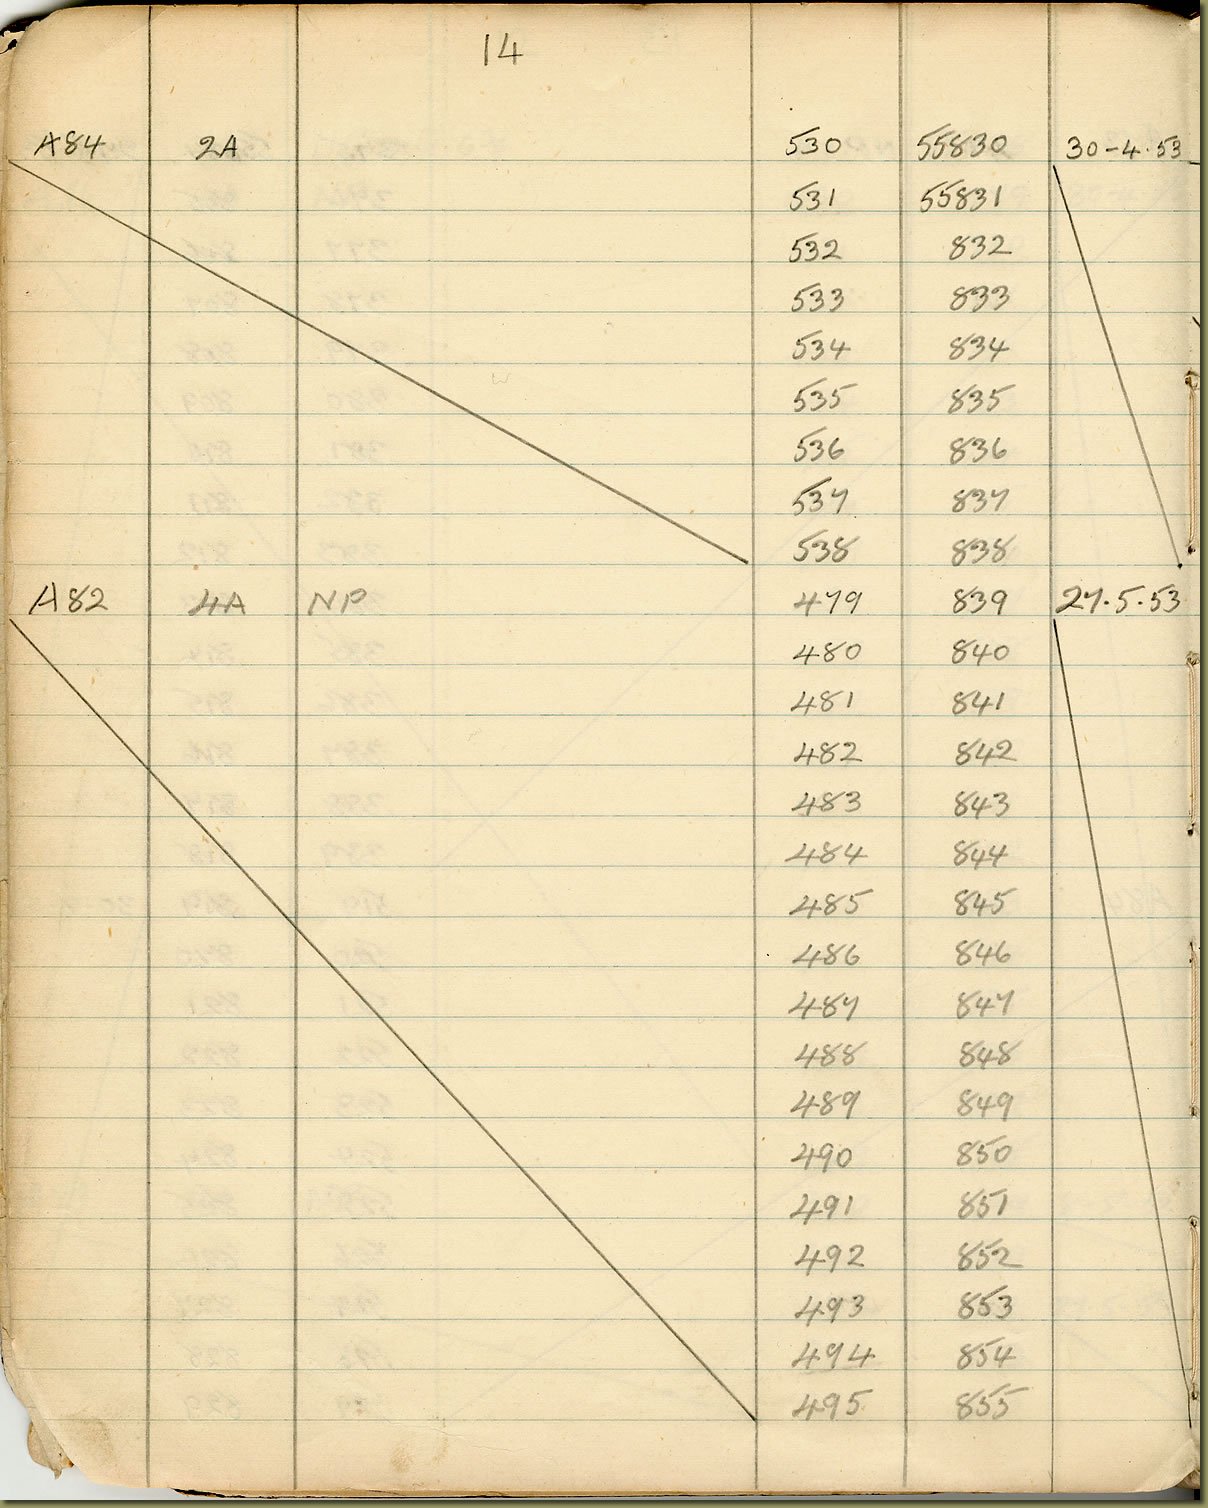 14
A84 2A 530 55830 30-4.53
531 55831
532 832
533 833
534 834
535 835
536 836
537 837
538 838
A82 4A NP 479 839 27.5.53
480 840
481 841
482 842
483 843
484 844
485 845
486 846
487 847
488 848
489 849
490 850
491 851
492 852
493 853
494 854
495 855